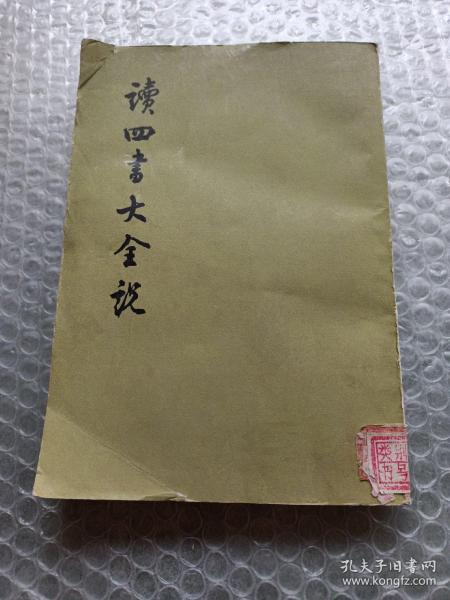 讀四書大全説
孔夫子旧书网
www.kongfz.com